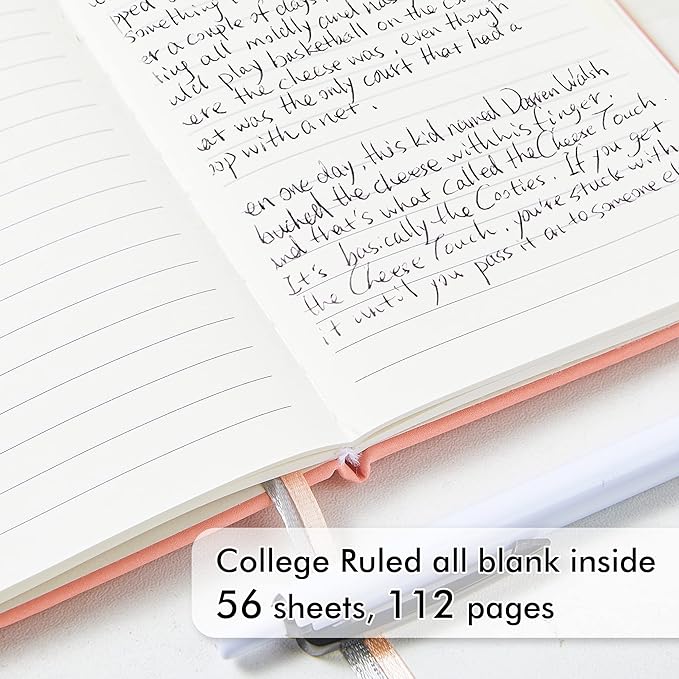 something
er a couple of days
ting all moldy and nas
uld play basketball on the
ere the cheese was, even though
at was the only court that had a
oop with a net.
en one day, this kid named Darren Walsh
buched the cheese with his finger.
and that's what called the Cheese Touch.
It's basically the Cooties. If you get
the Cheese Touch, you're stuck with
it until you pass it on to someone el
College Ruled all blank inside
56 sheets, 112 pages